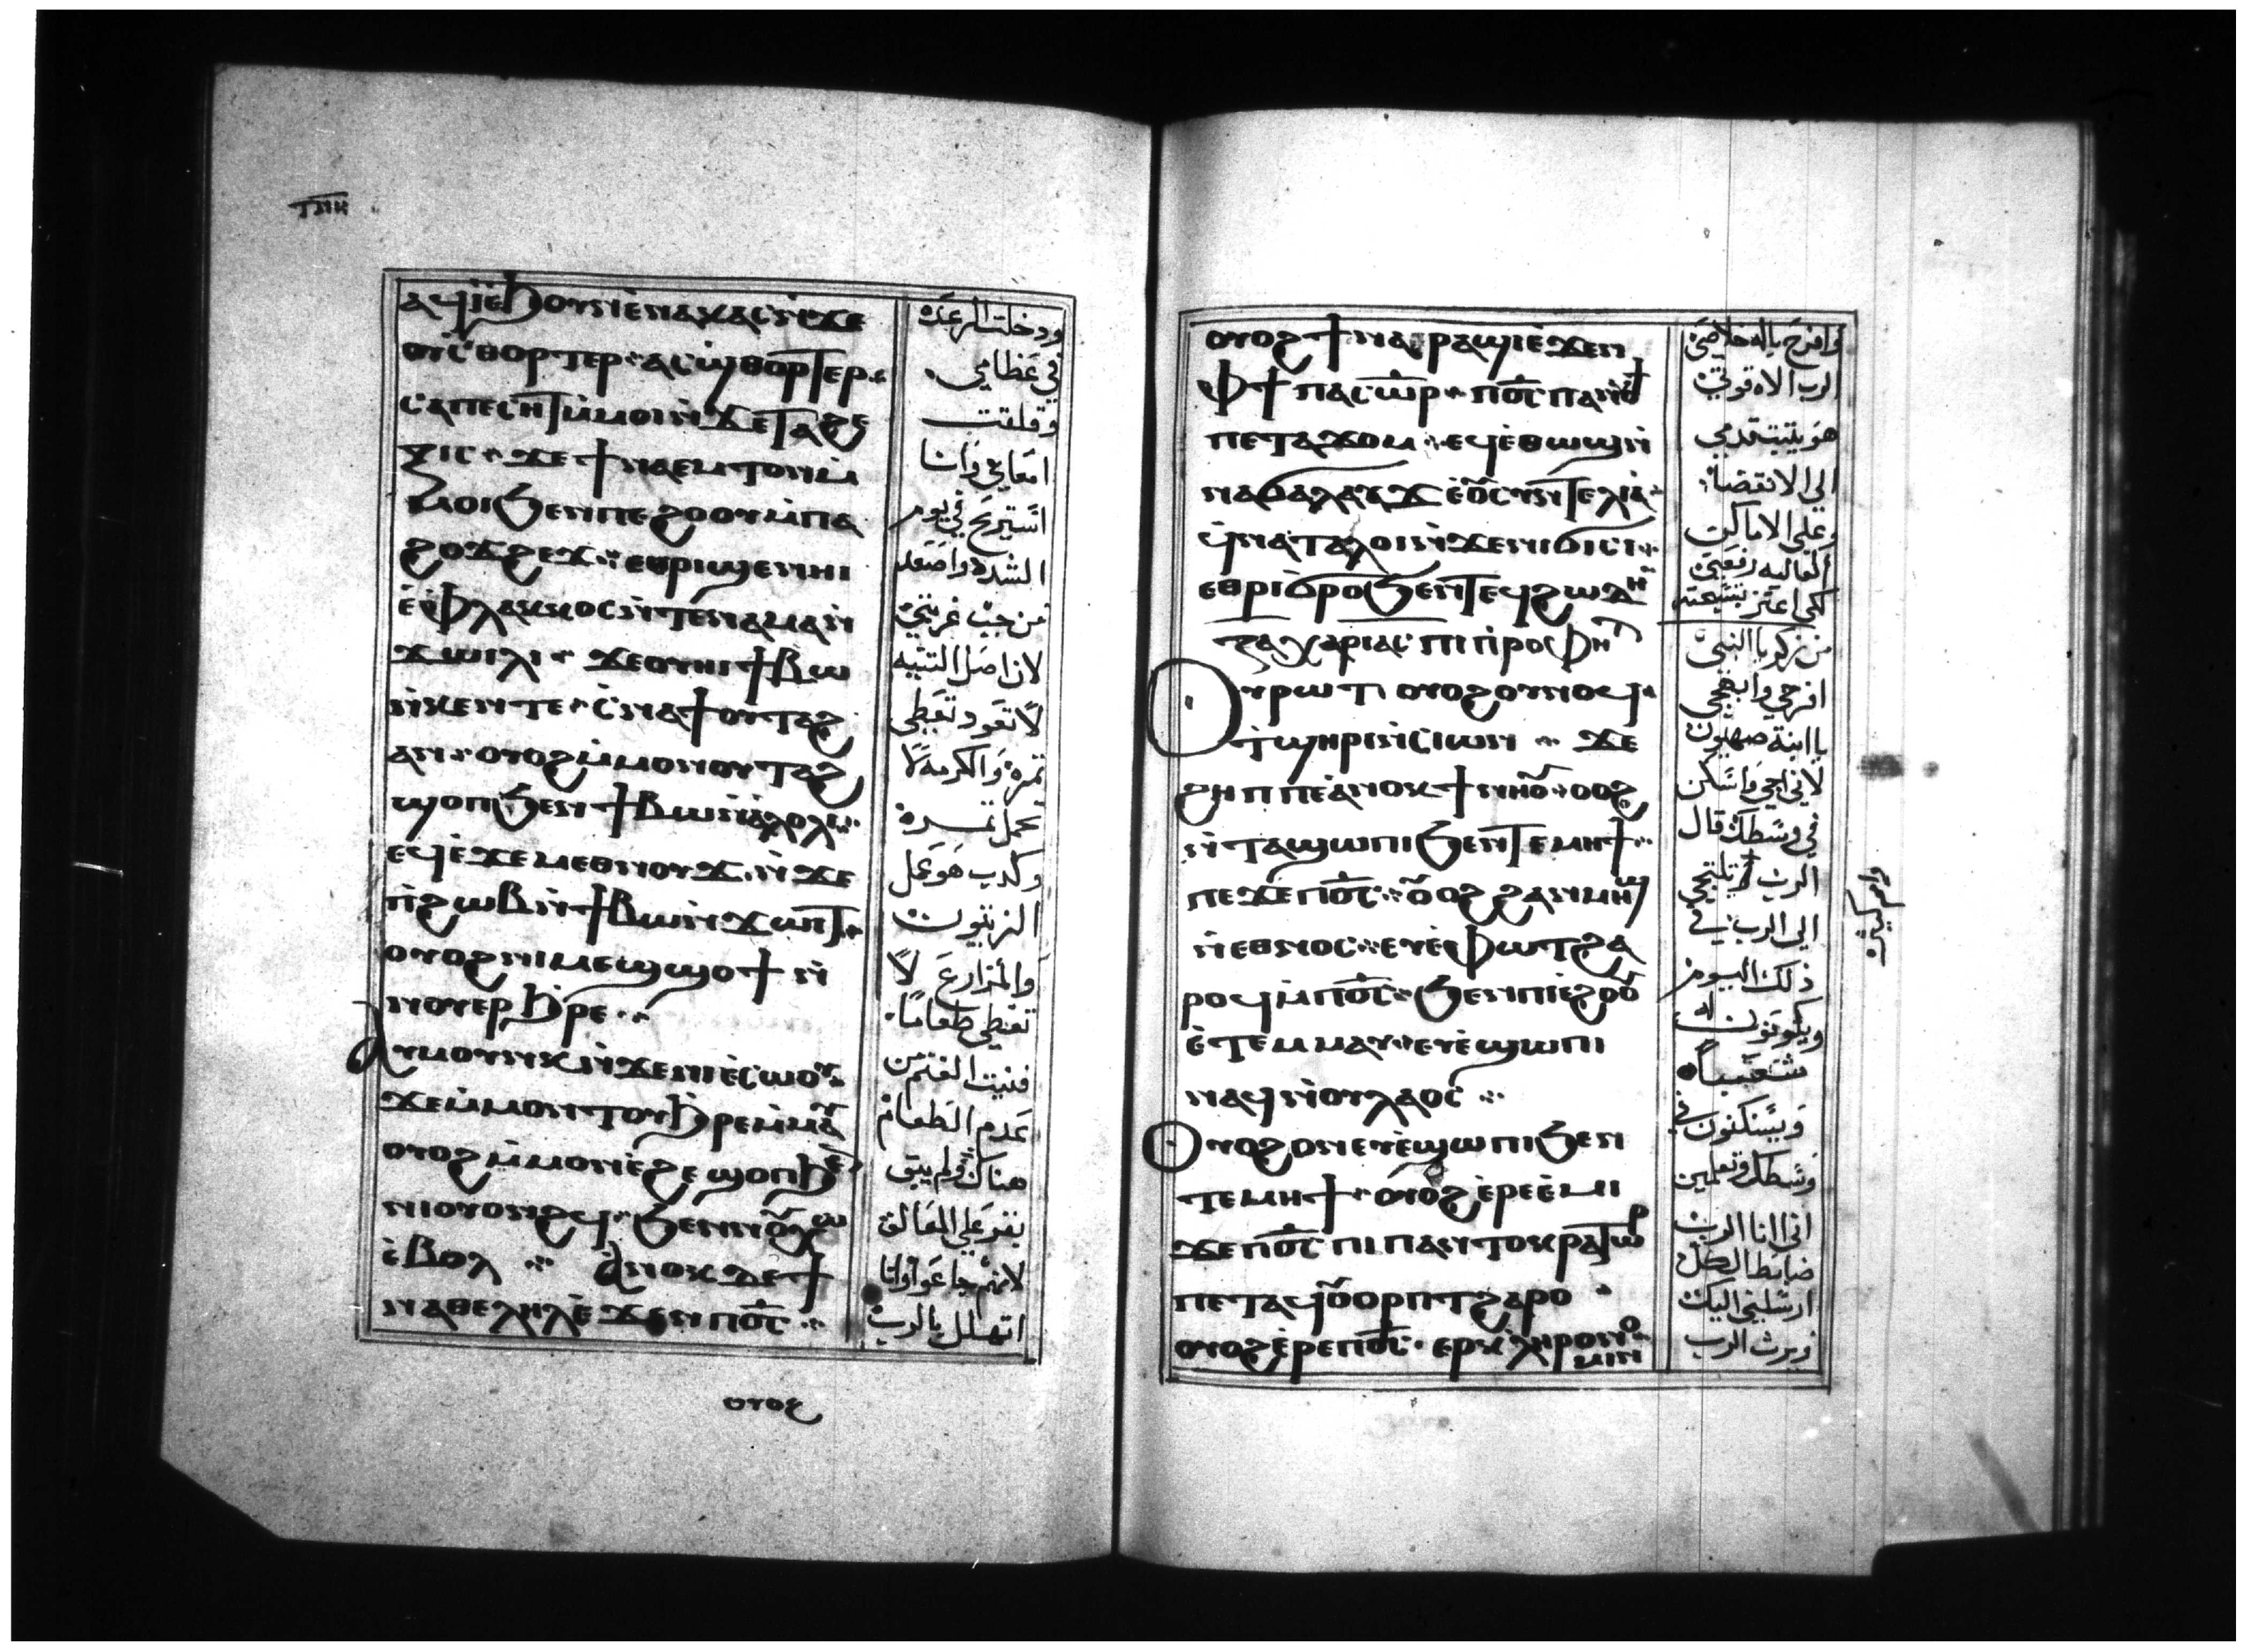 ⲧⲛⲏ
ⲁϥⲓ̀ⲉ̀ϧⲟⲩⲛⲉ̀ⲛⲁⲕⲁⲥⲛ̀ϫⲉ
ⲟⲩⲥ̀ⲑⲟⲣⲧⲉⲣ ⲁⲥϣ̀ⲑⲟⲣⲧⲉⲣ
ⲥⲁⲡⲉⲥⲏⲧⲙ̀ⲙⲟⲓⲛ̀ϫⲉⲧⲁϩⲉ
ⲝⲓⲥ ϫⲉϯⲛⲁⲉⲙⲧⲟⲛⲙ̀
ⲙⲟⲓϧⲉⲛⲡⲉϩⲟⲟⲩⲙ̀ⲡⲁ
ϩⲟϫϩⲉϫ ⲉⲑⲣⲓϣⲉⲛⲏⲓ
ϫⲱⲓⲗⲓ ϫⲉⲟⲩⲏⲓϯⲃⲱ
ⲛ̀ⲕⲉⲛⲧⲉ ⲥ̀ⲛⲁϯⲟⲩⲧⲁϩ
ⲁⲛ ⲟⲩⲟϩⲙ̀ⲙⲟⲛⲟⲩⲧⲁϩ
ϣⲟⲡϧⲉⲛϯⲃⲱⲛ̀ⲁ̀ⲗⲟⲗⲓ
ⲉϥⲉ̀ϫⲉⲙⲉⲑⲛⲟⲩϫ ⲛ̀ϫⲉ
ⲡ̀ϩⲱⲃⲛ̀ϯⲃⲱⲛ̀ϫⲱⲓⲧ
ⲟⲩⲟϩⲛⲓⲙⲉϣϣⲟϯ ⲛ̀
ⲛⲟⲩⲉⲣϧ̀ⲣⲉ
ⲁⲩⲙⲟⲩⲛⲕⲛ̀ϫⲉⲛⲓⲉ̀ⲥⲱⲟⲩ
ϫⲉⲙ̀ⲙⲟⲛⲧⲟⲩϧ̀ⲣⲉⲙ̀ⲙⲁⲩ
ⲟⲩⲟϩⲙ̀ⲙⲟⲛⲉ̀ϩⲉϣⲟⲡϧⲉ
ⲉ̀ⲃⲟⲗ ⲁⲛⲟⲕⲇⲉϯ
ⲛⲁⲑⲉⲗⲏⲗⲉ̀ϫⲉⲛⲡⲟ̅ⲥ̅
ودخلت الرعده
في عظامي
وقلقت
امعاي وانا
استريح في يوم
الشده واصعد
لان اصل التينه
لا تعود تعطي
ثمره والكرمه لا
تحمل ثمره
وكدب هو عمل
الزيتون
والمزارع لا
تعطي طعاما
فنيت الغنم من
عدم الطعام
هناك ولم يبق
بقر علي المعالف
اتهلل بالرب
ⲟⲩⲟϩ
ⲟⲩⲟϩϯⲛⲁⲣⲁϣⲓⲉ̀ϫⲉⲛ
ⲫϯ ⲡⲁⲥⲱ̅ⲣ̅ ⲡⲟ̅ⲥ̅ ⲡⲁⲛⲟⲩϯ
ⲡⲉⲧⲁϫⲟⲙ ⲉϥⲉ̀ⲑⲱϣⲛ̀
ⲛⲁϭⲁⲗⲁⲩϫ ⲉⲟⲩⲥⲩⲛⲧⲉⲗⲓⲁ
ϥ̀ⲛⲁⲧⲁⲗⲟⲓⲛ̀ϫⲉⲛⲓϭⲓⲥⲓ
ⲉⲑⲣⲓϭⲣⲟϧⲉⲛⲧⲉϥϩⲱⲇⲏ
ⲍⲁⲭⲁⲣⲓⲁⲥ ⲡⲓⲡ̀ⲣⲟⲫⲏⲧ
ⲟⲩⲣⲱⲧ ⲟⲩⲟϩⲟⲩⲛⲟϥ
ⲧ̀ϣⲏⲣⲓⲛ̀ⲥⲓⲱⲛ ϫⲉ
ϩⲏⲡⲡⲉⲁ̀ⲛⲟⲕϯⲛⲏⲟⲩ ⲟⲩⲟϩ
ⲛ̀ⲧⲁϣⲱⲡⲓϧⲉⲛⲧⲉⲙⲏϯ
ⲡⲉϫⲉⲡⲟ̅ⲥ̅ ⲟⲩⲟϩ ϩⲁⲛⲙⲏϣ
ⲛ̀ⲉⲑⲛⲟⲥ ⲉⲩⲉ̀ⲫⲱⲧϩⲁ
ⲣⲟϥⲙ̀ⲡⲟ̅ⲥ̅ ϧⲉⲛⲡⲓⲉ̀ϩⲟⲟⲩ
ⲉ̀ⲧⲉⲙⲙⲁⲩ ⲉⲩⲉ̀ϣⲱⲡⲓ
ⲛⲁϥⲛ̀ⲟⲩⲗⲁⲟⲥ
ⲟⲩⲟϩⲟⲛⲉⲩⲉ̀ϣⲱⲡⲓϧⲉⲛ
ⲧⲉⲙⲏϯ ⲟⲩⲟϩⲉ̀ⲣⲉⲉ̀ⲙⲓ
ϫⲉⲡⲟ̅ⲥ̅ ⲡⲓⲡⲁⲛⲧⲟⲕⲣⲁⲧⲱⲣ
ⲡⲉⲧⲁϥⲟⲩⲟⲣⲡⲧϩⲁⲣⲟ
ⲟⲩⲟϩⲉ̀ⲣⲉⲡⲟ̅ⲥ̅ ⲉⲣⲕ̀ⲗⲏⲣⲟⲛⲟ
ⲙⲓⲛ
وافرح باله خلاصي
الرب الاه قوتي
هو يثبت قدمي
الي الانقضا
وعلي الاماكن
العاليه رفعني
من زكريا النبي
افرحي وابهجي
يا ابنة صهيون
لاني اجي واسكن
في وسطك قال
الي الرب في
ذلك اليوم
ويكونون له
شعبا
ويسكنون في
وسطك وتعلمين
اني انا الرب
ضابط الكل
ارسلني اليك
ويرث الرب